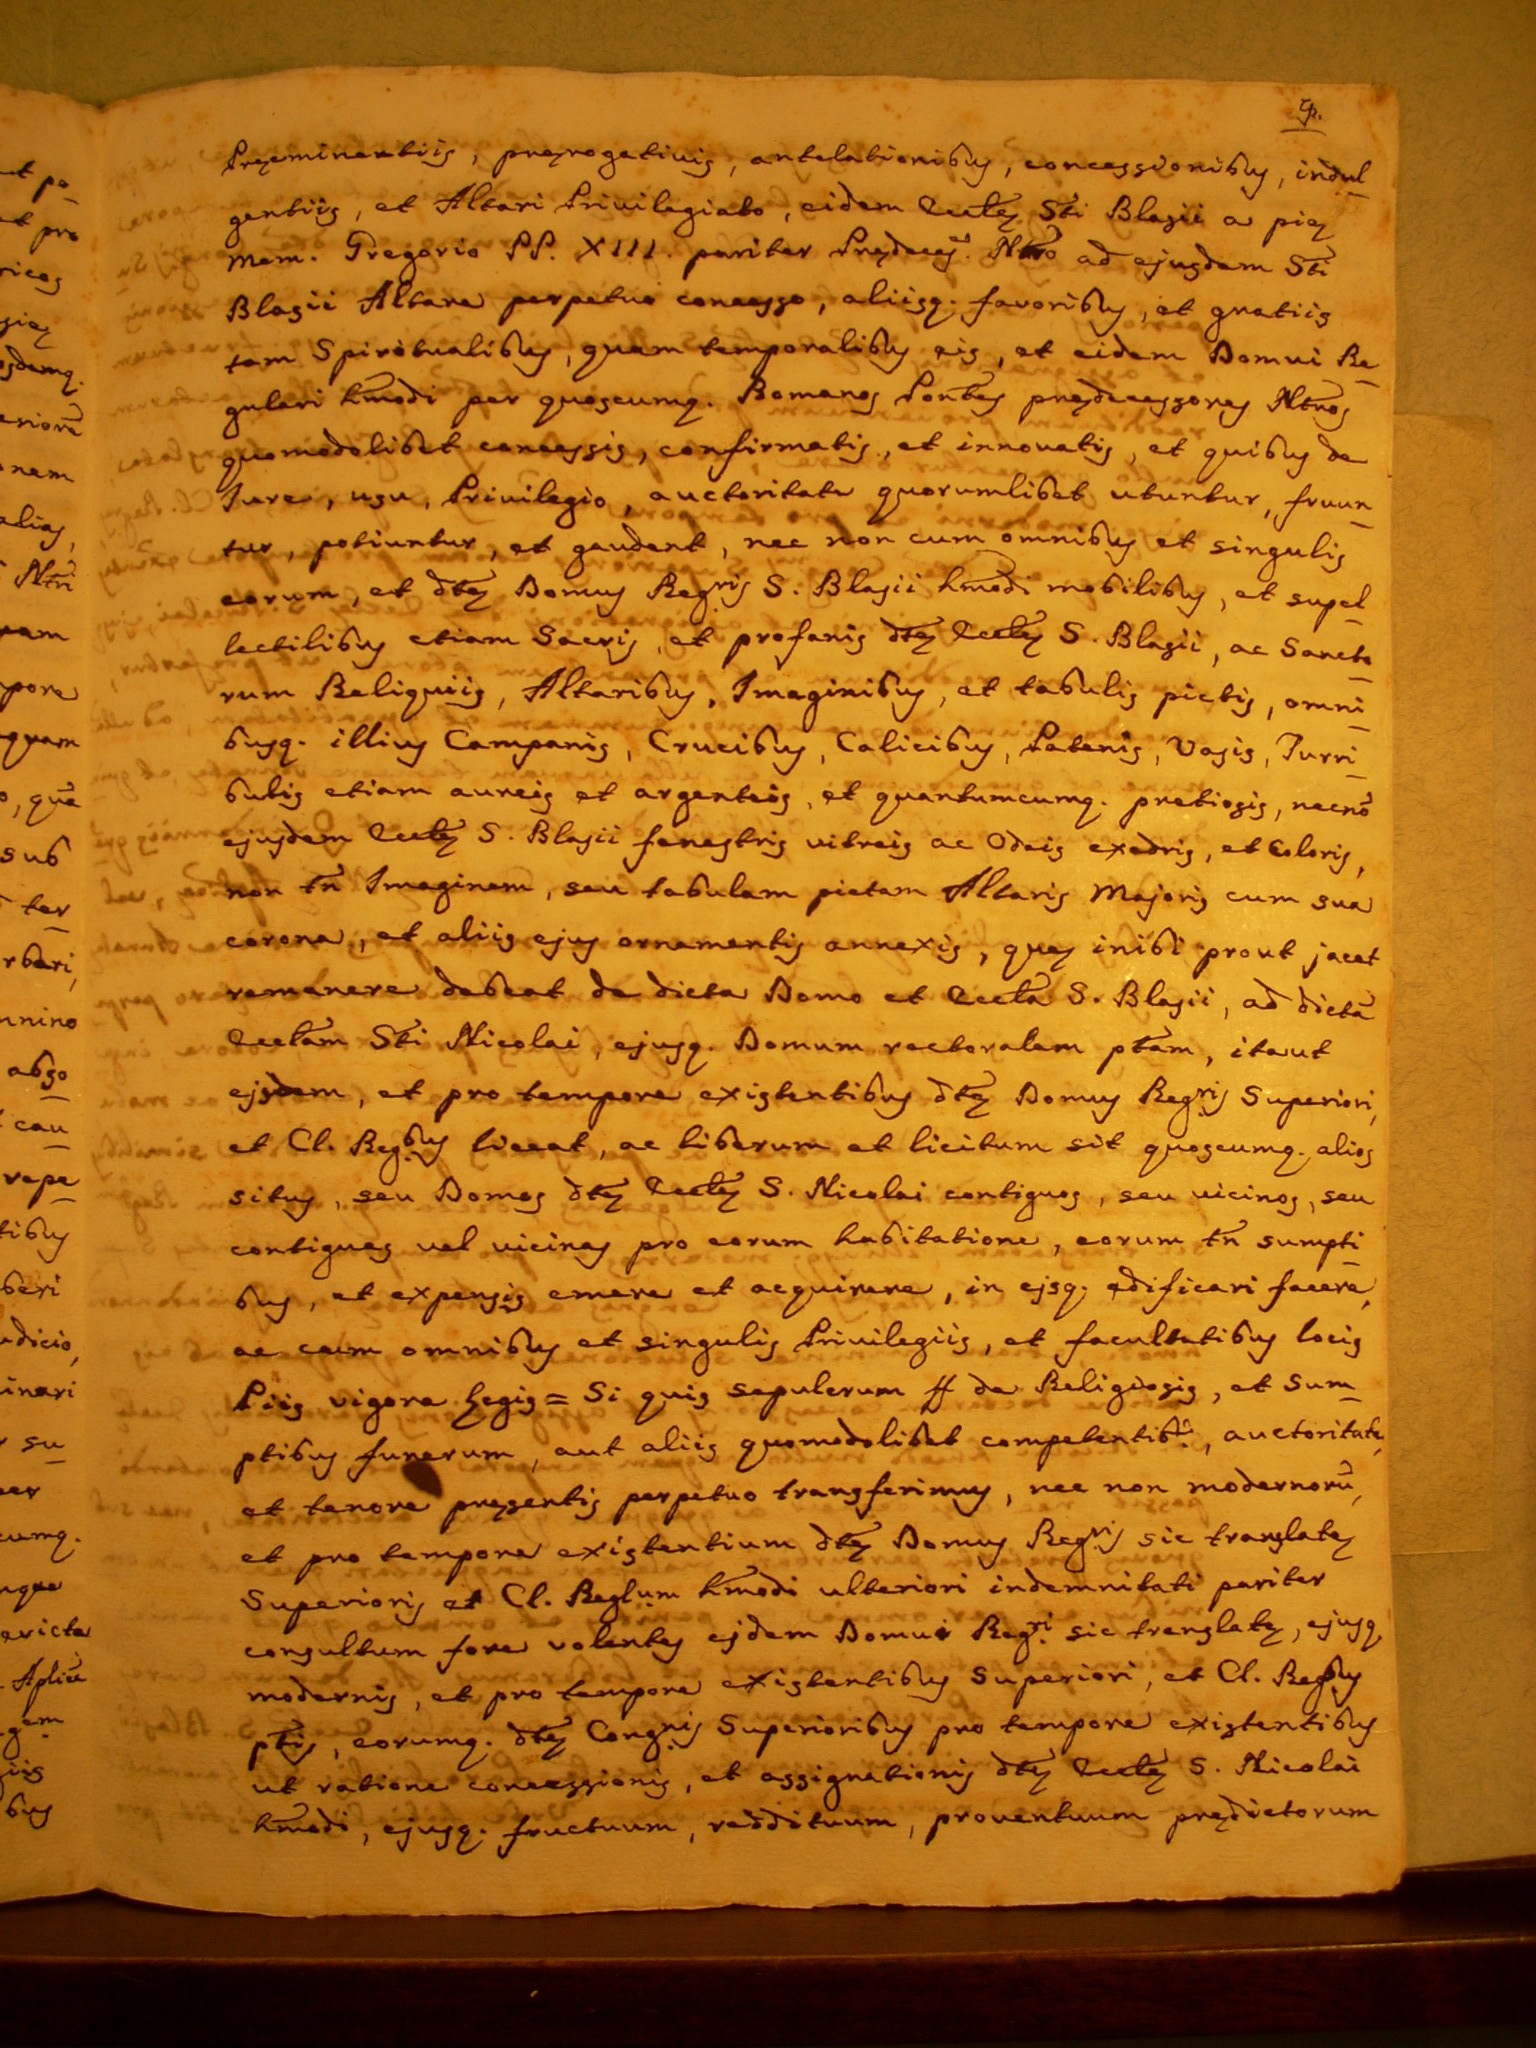 9.
Pręeminentiis, pręrogativis, antelationibus, concessionibus, indul
gentiis, et Altari Privilegiato, eidem Ecclę Sti Blasii a pię
mem. Gregorio PP. XIII. pariter Prędeceꝰ. Ntro ad ejusdem Sti
Blasii Altare perpetuo concesso, aliisq. favoribus, et gratiis
tam Spiritualibus, quam temporalibus eis, et eidem Domui Re
gulari hmodi per quoscumq. Romanos Pontes prędecessores Ntros
quomodolibet concessis, confirmatis, et innovatis, et quibus de
Jure, usu, Privilegio, auctoritate quorumlibet utuntur, fruun
tur, potiuntur, et gaudent, nec non cum omnibus et singulis
eorum, et dtę Domus Regris S. Blasii hmodi mobilibus, et supel
lectilibus etiam Sacris, et profanis dtę Ecclę S. Blasii, ac Sancto
rum Reliquiis, Altaribus, Imaginibus, et tabulis pictis, omni
busq. illius Campanis, Crucibus, Calicibus, Patenis, Vasis, Turri
bulis etiam aureis et argenteis, et quantumcumq. pretiosis, necnō
ejusdem Ecclę S. Blasii fenestris vitreis ac Odeis exedris, et coloris,
non tn Imaginem, seu tabulam pictam Altaris Majoris cum sua
corona, et aliis ejus ornamentis annexis, quę inibi prout jacet
remanere debeat de dicta Domo et Eccla S. Blasii, ad dictā
Ecclam Sti Nicolai, ejusq. Domum rectoralem ptam, itaut
ejsdem, et pro tempore existentibus dtę Domus Regris Superiori,
et Cl. Reg.bus liceat, ac liberum et licitum sit quoscumq. alios
situs, seu Domos dtę Ecclę S. Nicolai contiguos, seu vicinos, seu
contiguas vel vicinas pro eorum habitatione, eorum tn sumpti
bus, et expensis emere et acquirere, in ejsq. ędificari facere,
ac cum omnibus et singulis Privilegiis, et facultatibus locis
Piis vigore Legis = Si quis sepulcrum ff de Religiosis, et Sum
ptibus funerum, aut aliis quomodolibet competentibꝰ, auctoritate,
et tenore pręsentis perpetuo transferimus, nec non modernorū,
et pro tempore existentium dtę Domus Regris sic translatę
Superioris et Cl. Reglum hmodi ulteriori indemnitati pariter
consultum fore volentes ejdem Domui Reg.ri sic translatę, ejusq.
modernis, et pro tempore existentibus Superiori, et Cl. Regbus
ptis, eorumq. dtę Congnis Superioribus pro tempore existentibus
ut ratione concessionis, et assignationis dtę Ecclę S. Nicolai
hmodi, ejusq. fructuum, reddituum, proventuum prędictorum